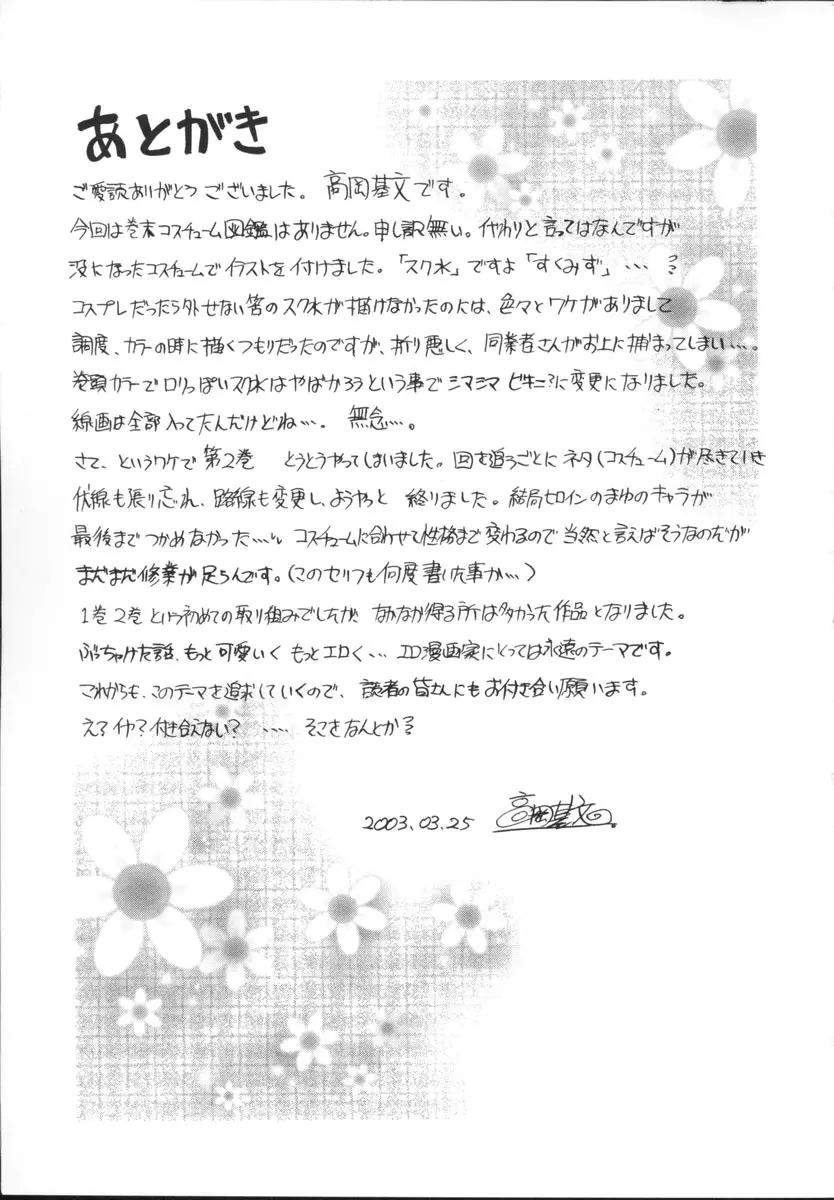 あとがき
ご愛読ありがとうございました。高岡基文です。
今回は巻末コスチューム図鑑はありません。申し訳無い。代わりと言ってはなんですが
没になったコスチュームでイラストを付けました。「スク水」ですよ「すくみず」…?
コスプレだったら外せない筈のスク水が描けなかったのには、色々とワケがありまして
調度、カラーの時に描くつもりだったのですが、折り悪しく、同業者さんがお上に捕まってしまい…。
巻頭カラーでロリっぽいスク水はやばかろうという事でシマシマビキニ?に変更になりました。
線画は全部入ってたんだけどね…。無念…。
さて、というワケで第2巻 とうとうやってしまいました。回を追うごとにネタ(コスチューム)が尽きていき
伏線も張り忘れ、路線も変更し、ようやっと 終りました。結局ヒロインのまゆのキャラが
最後までつかめなかった… コスチュームに合わせて性格まで変わるので当然と言えばそうなのだが
まだまだ修業が足らんです。(このセリフも何度書いた事か…)
1巻2巻という初めての取り組みでしたが、なかなか得る所は多かった作品となりました。
ぶっちゃけた話、もっと可愛いく もっとエロく… エロ漫画家にとっては永遠のテーマです。
これからも、このテーマを追求していくので、読者の皆さんにもお付き合い願います。
え?イヤ?付き合えない? …. そこをなんとか?
2003.03.25 高岡基文